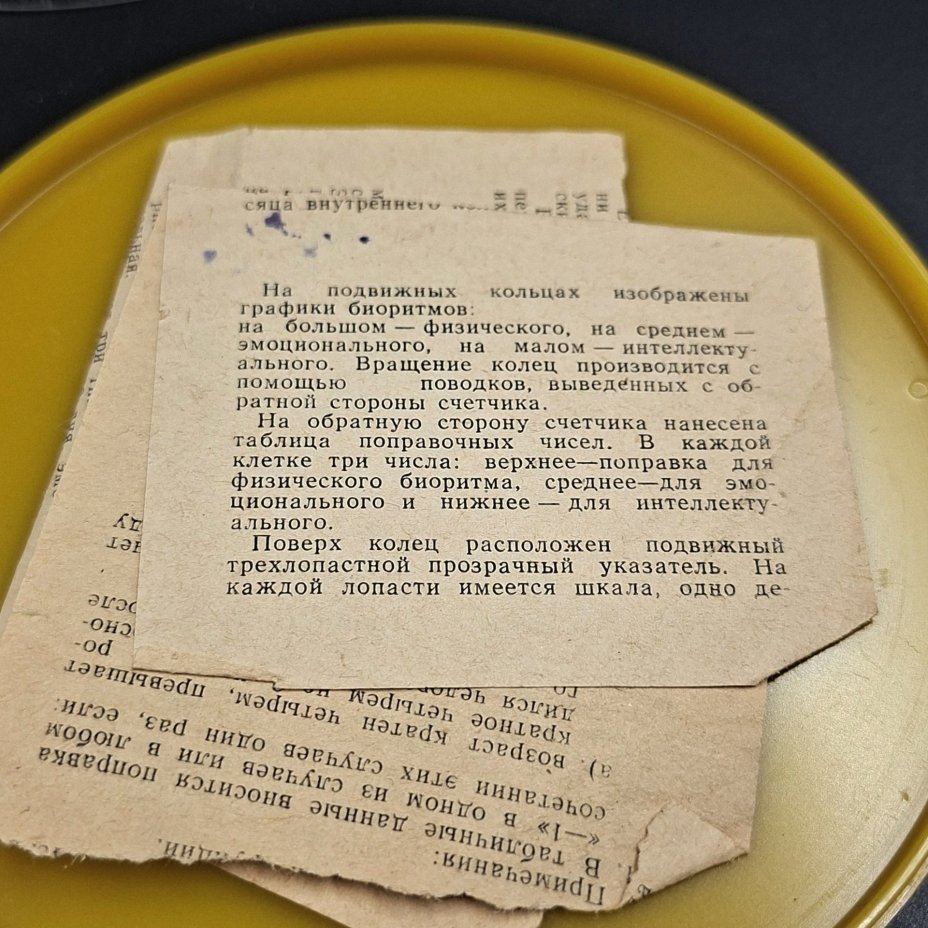 сяца внутреннего
На подвижных кольцах изображены
графики биоритмов:
на большом — физического, на среднем —
эмоционального, на малом — интеллекту-
ального. Вращение колец производится с
помощью поводков, выведенных с об-
ратной стороны счетчика.
На обратную сторону счетчика нанесена
таблица поправочных чисел. В каждой
клетке три числа: верхнее—поправка для
физического биоритма, среднее—для эмо-
ционального и нижнее — для интеллекту-
ального.
Поверх колец расположен подвижный
трехлопастной прозрачный указатель. На
каждой лопасти имеется шкала, одно де-
Примечания:
В табличные данные вносится поправка
«—1» в одном из случаев или в любом
сочетании этих случаев один раз, если:
а). возраст кратен четырем, превышает
кратное четырем
дился